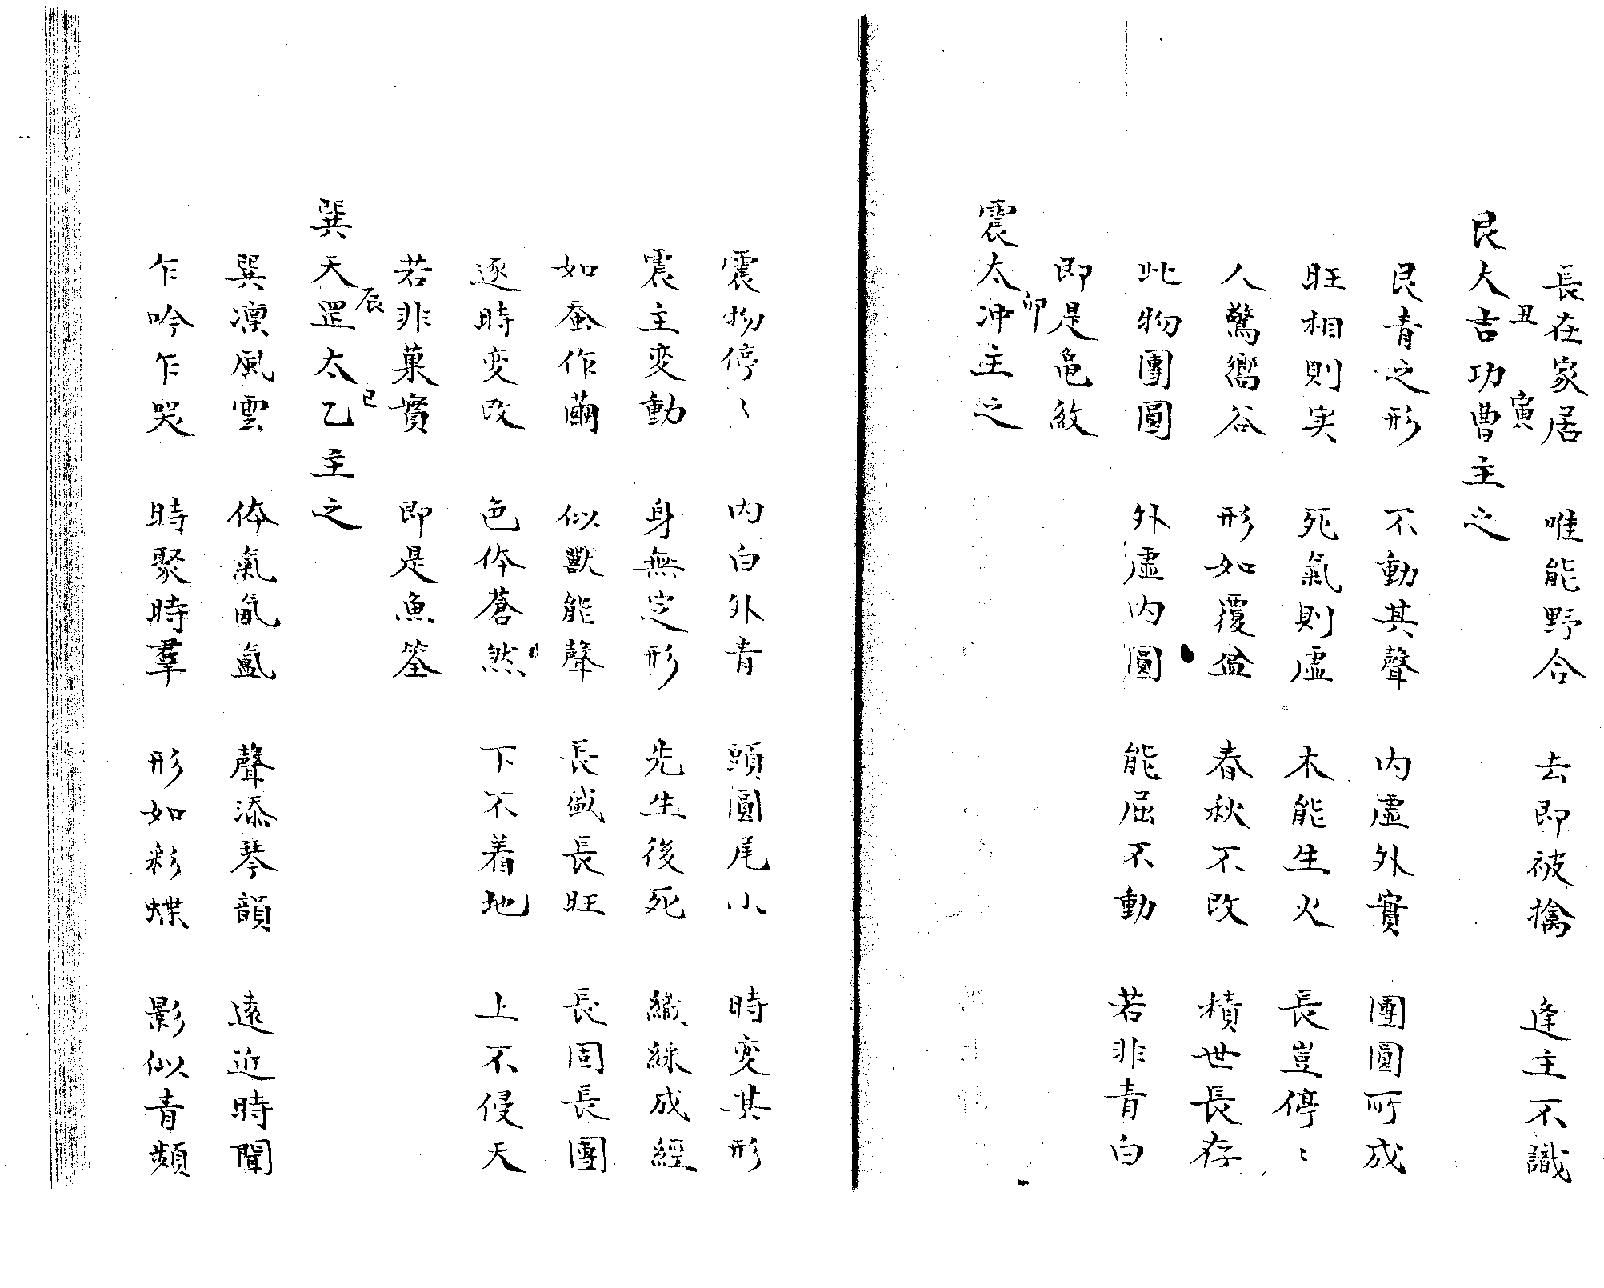 長在家居 唯能野合 去即被擒 逢主不識
艮大吉丑功曹寅主之
艮青之形 不動其聲 內虛外實 團圓所成
旺相則实 死氣則虛 木能生火 長豈停〻
人驚嚮谷 形如覆盆 春秋不改 積世長存
此物團圓 外虛內圓 能屈不動 若非青白
即是亀紋
震太冲卯主之
震物停〻 內白外青 頭圓尾小 時变其形
震主变動 身無定形 先生後死 織綵成經
如蚕作繭 似獸能聲 長盛長旺 長固長團
逐時变改 色体蒼然 下不着地 上不侵天
若非菓實 即是魚筌
巽天罡辰太乙巳主之
巽凛風雲 体氣氤氲 聲添琴韻 遠近時聞
乍吟乍哭 時聚時羣 形如彩蝶 影似青蘋